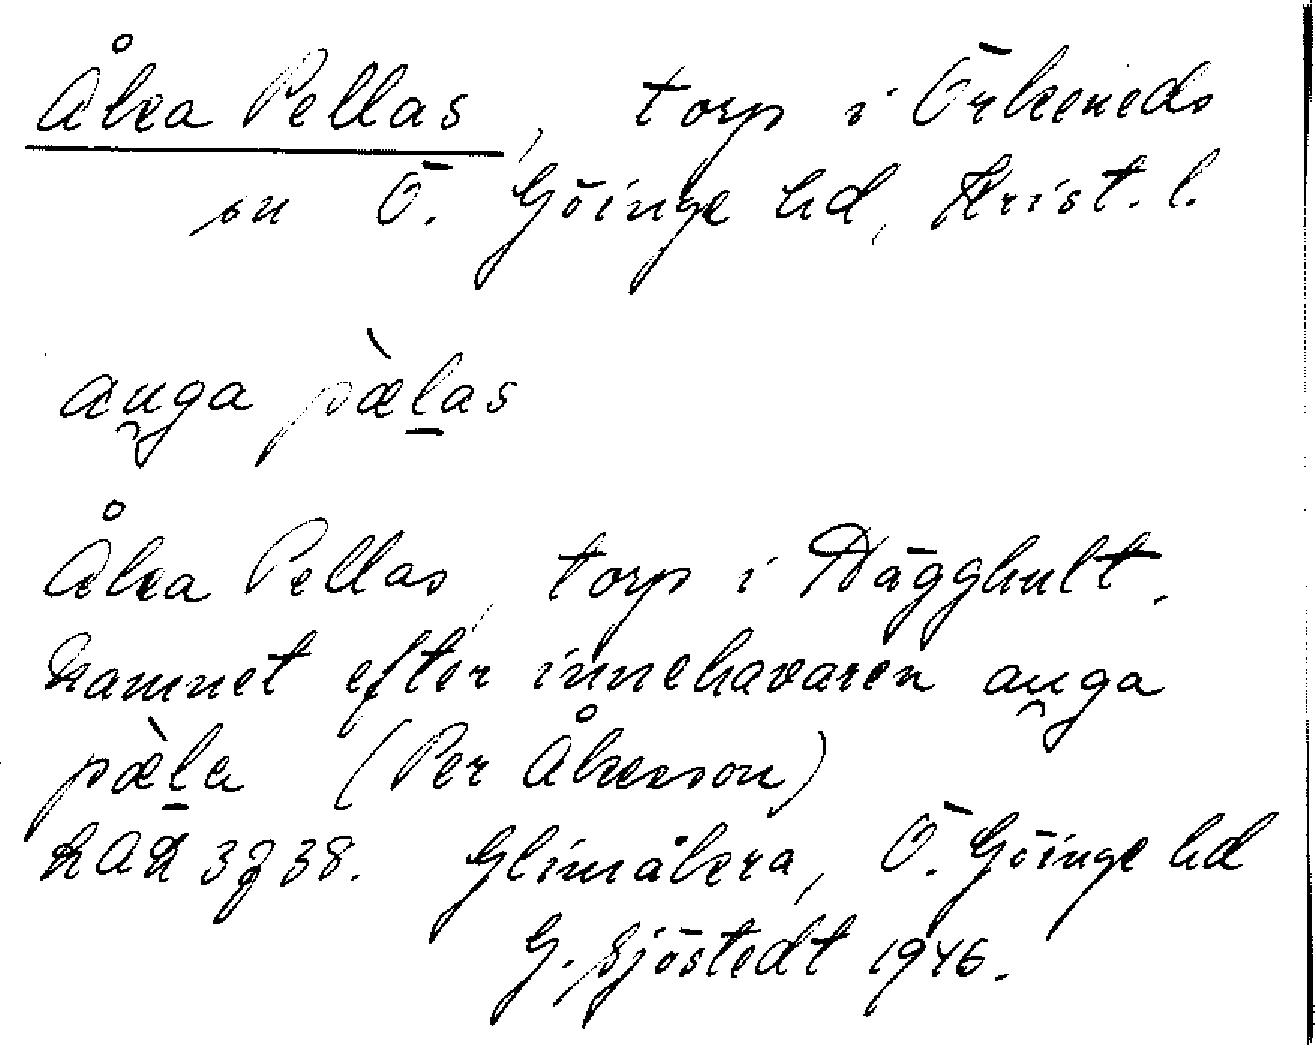 Åka Pellas, torp i Örkeneds
sn Ö. Göinge hd, Krist. l.
au̯ga pæ̀l̠as
Åka Pellas, torp i Hägghult.
Namnet efter innehavaren au̯ga
pæ̀l̠a (Per Åkesson)
38. Glimåkra, Ö. Göinge hd
G. Sjöstedt 1946.